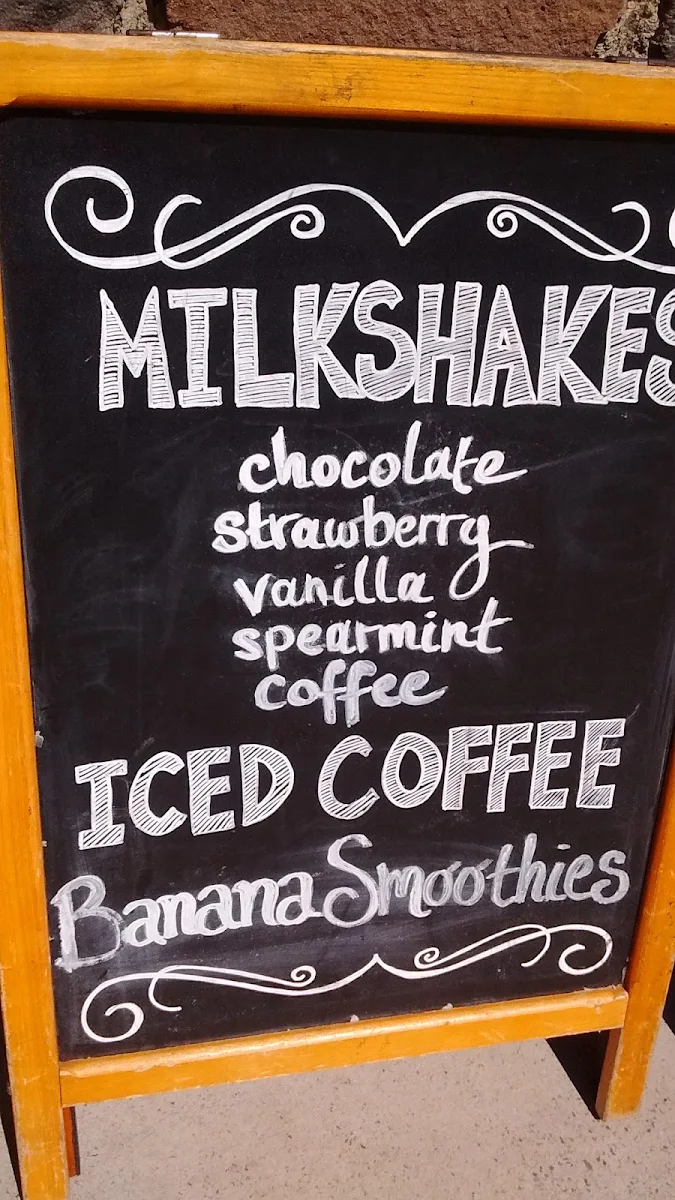 MILKSHAKES
chocolate
strawberry
vanilla
spearmint
coffee
ICED COFFEE
Banana Smoothies